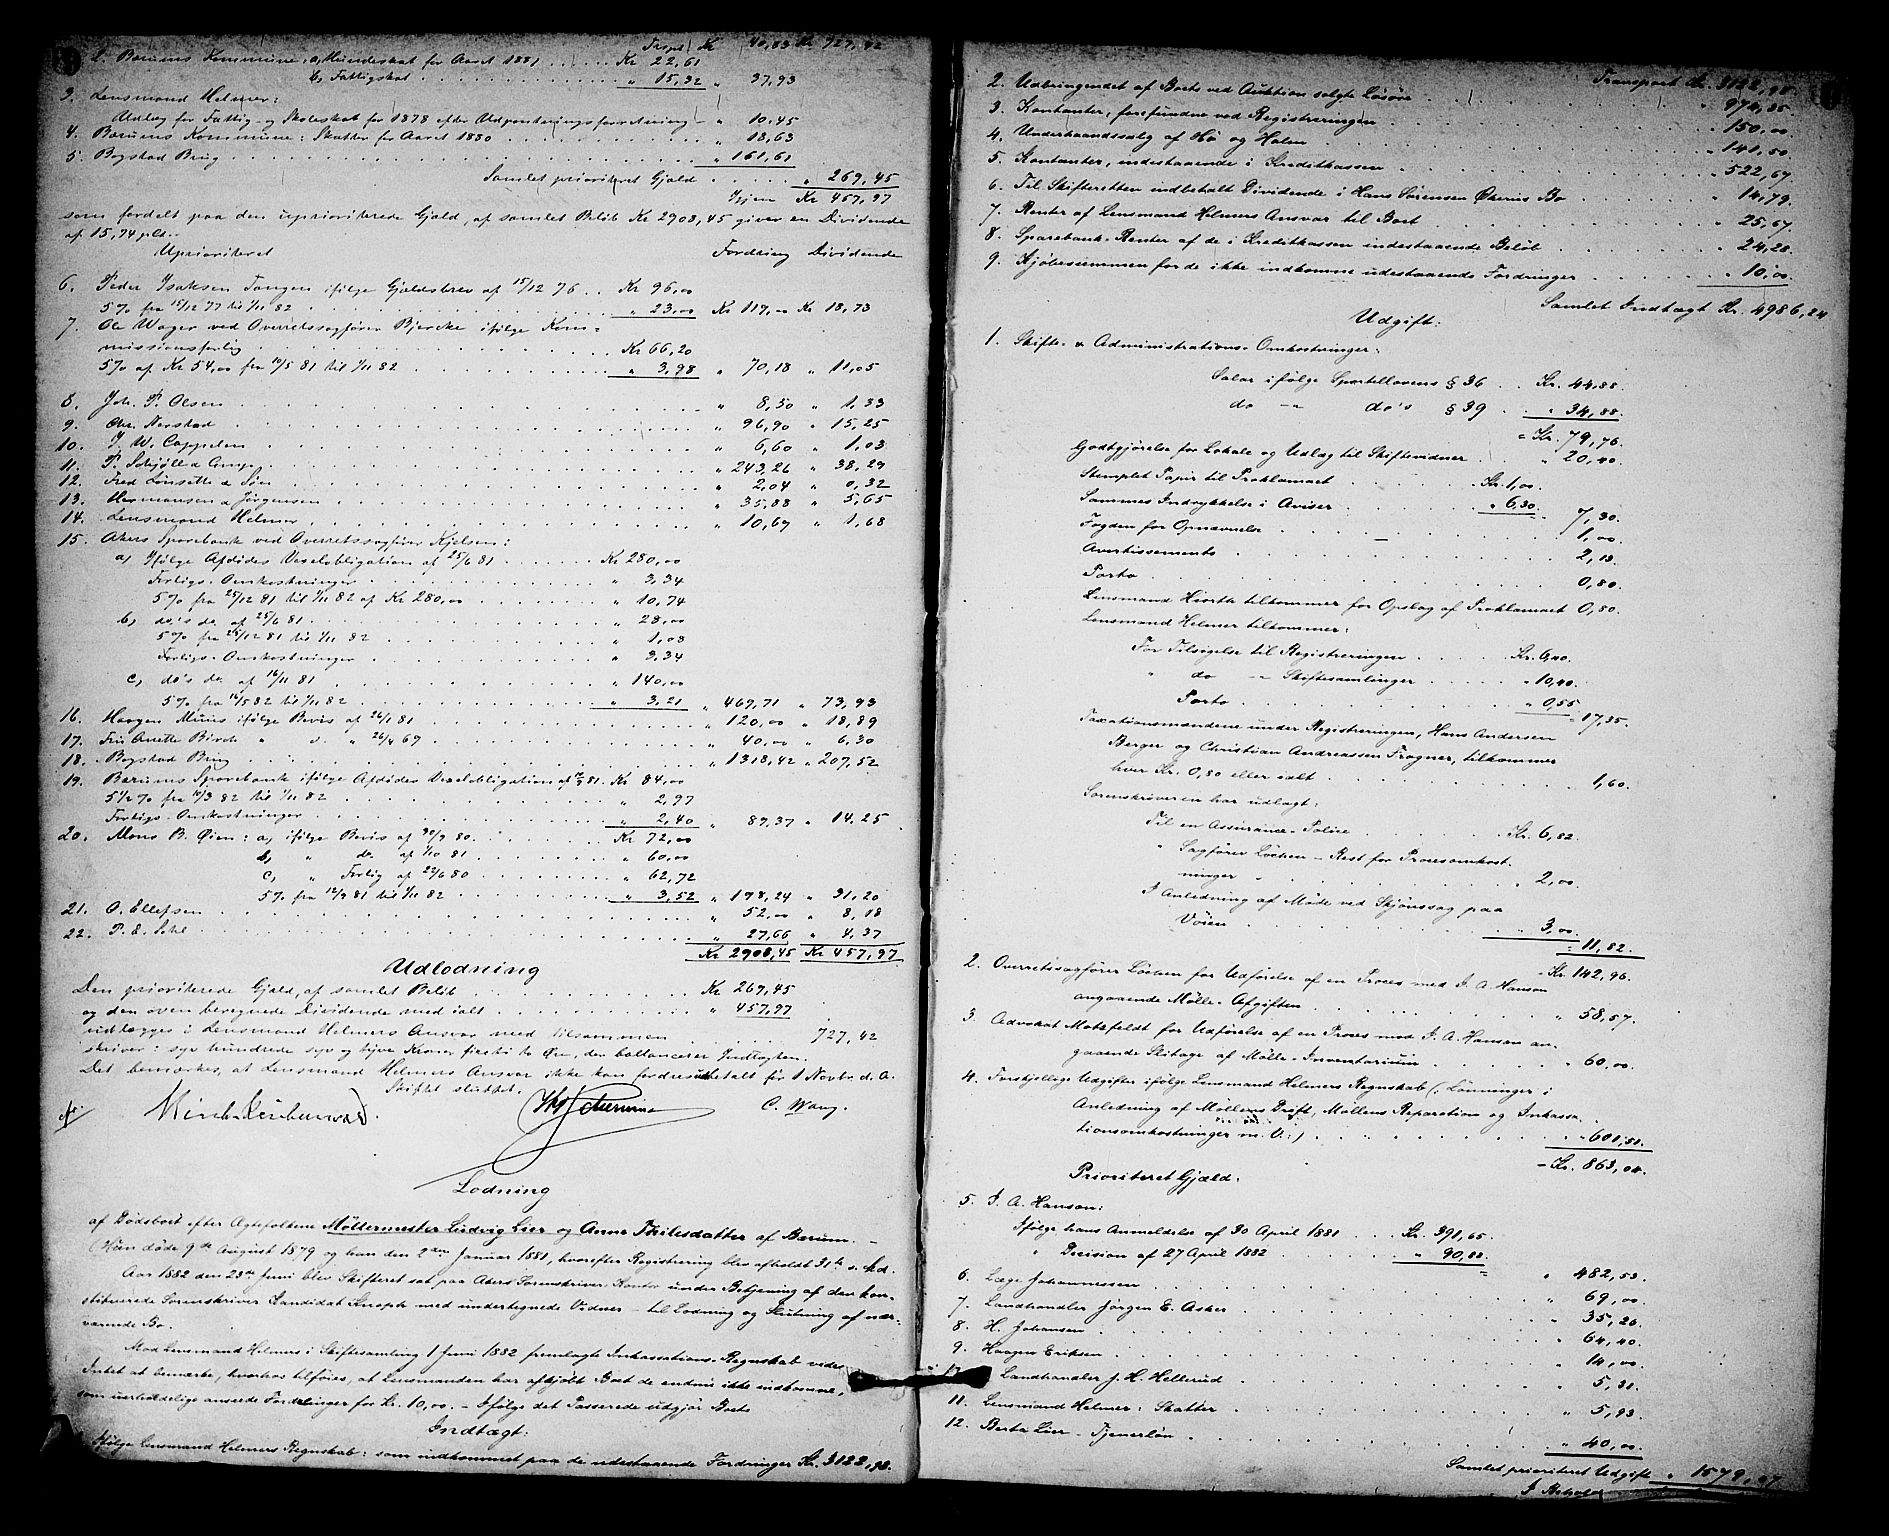 Trsp. Kr 40,83 Kr 727,42
2. Bærums Kommune, a, Hundeskat for Aaret 1881 . . . . Kr 22,61
b, Fattigskat . . . . „ 15,32 „ 37,93
3. Lensmand Helmer:
Udlæg for Fattig- og Skoleskat for 1878 efter Udpantningsforretning - „ 10,45
4. Bærums Kommune: Skatter for Aaret 1880 . . . . „ 18,63
5. Bogstad Brug . . . . „ 161,61
Samlet prioriteret Gjæld . . . . „ 269,45
Igjen Kr 457,97
som fordelt paa den uprioriterede Gjæld, af samlet Beløb Kr 2908,45 giver en Dividende
af 15,74 pCt.
Uprioriteret Fordring Dividende
6. Peder Isaksen Tangen ifølge Gjældsbrev af 15/12 76 . . Kr 96,00
5 % fra 15/12 77 til 1/11 82 . . . . „ 23,00 Kr 119,00 Kr 18,73
7. Ole Wager ved Overretssagfører Bjercke ifølge Kom-
missionsforlig . . . . Kr 66,20
5 % af Kr 54,00 fra 10/5 81 til 1/11 82 . . . . „ 3,98 „ 70,18 „ 11,05
8. Joh. P. Olsen . . . . „ 8,50 „ 1,33
9. Chr. Nerstad . . . . „ 96,90 „ 15,25
10. J. W. Cappelen . . . . „ 6,60 „ 1,03
11. P. Schjøll & Comp. . . . . „ 243,26 „ 38,29
12. Fred Lønsette & Søn . . . . „ 2,04 „ 0,32
13. Hermansen & Jørgensen . . . . „ 35,88 „ 5,65
14. Lensmand Helmer . . . . „ 10,67 „ 1,68
15. Akers Sparebank ved Overretssagfører Kjelsen:
a, Ifølge Afdødes Vexelobligation af 25/6 81 . . . . Kr 280,00
Forligs-Omkostninger . . . . „ 3,34
5 % fra 25/12 81 til 1/11 82 af Kr 280,00 . . . . „ 10,74
b, do's do. af 25/6 81 . . . . „ 28,00
5 % fra 25/12 81 til 1/11 82 . . . . „ 1,08
Forligs-Omkostninger . . . . „ 3,34
c, do's do. af 16/11 81 . . . . „ 140,00
5 % fra 16/5 82 til 1/11 82 . . . . „ 3,21 „ 469,71 „ 73,93
16. Haagen Muus ifølge Bevis af 26/1 81 . . . . „ 120,00 „ 18,89
17. Frk Anette Birch „ d. „ 26/4 69 . . . . „ 40,00 „ 6,30
18. Bogstad Brug . . . . „ 1318,42 „ 207,52
19. Bærums Sparebank ifølge Afdødes Vexelobligation af 10/9 81. Kr 84,00
5 1/2 % fra 10/3 82 til 1/11 82 . . . . „ 2,97
Forligs-Omkostninger . . . . „ 2,40 „ 89,37 „ 14,25
20. Mons B. Øien: a, ifølge Bevis af 30/9 80. . . . Kr 72,00
b, „ do. af 1/10 81 . . . . „ 60,00
c, „ Forlig af 29/6 80 . . . . „ 62,72
5 % fra 12/9 81 til 1/11 82 . . . . „ 3,52 „ 198,24 „ 31,20
21. O. Ellefsen . . . . „ 52,00 „ 8,18
22. P. E. . . . . „ 27,66 „ 4,37
Kr 2908,45 Kr 457,97
Udlodning
Den prioriterede Gjæld, af samlet Beløb . . . . Kr 269,45
og den oven beregnede Dividende med ialt . . . . „ 457,97
udlægges i Lensmand Helmers Ansvar med tilsammen . . . . 727,42
skriver: syv hundrede syv og tyve Kroner firti to Øre, der ballancerer Indtægten.
Det bemærkes, at Lensmand Helmers Ansvar ikke kan fordres udbetalt før 1 Novbr. d. A.
Skiftet sluttet.
C. Wang.
Lodning
af Dødsboet efter Ægtefolkene Møllermester Ludvig Lier og Anne Thilesdatter af Bærum. -
(Hun døde 9de August 1879 og han den 2den Januar 1881, hvorefter Registrering blev afholdt 31te s. Md.
Aar 1882 den 23de Juni blev Skifteret sat paa Akers Sorenskriver-Kontor under Betjening af den kon-
stituerede Sorenskriver Kandidat Knoph med undertegnede Vidner - til Lodning og Slutning af nær-
værende Bo.
Mod Lensmand Helmers i Skiftesamling 1 Juni 1882 fremlagte Inkassations-Regnskab vides
Intet at bemærke, hvorhos tilføies, at Lensmanden har afkjøbt Boet de endnu ikke indkomne,
som uerholdelige ansete Fordringer for Kr. 10,00. - Ifølge det Passerede udgjør Boets
Indtægt:
1. Ifølge Lensmand Helmers Regnskab: som indkommet paa de udestaaende Fordringer Kr. 3122,98.
Transport Kr. 3122,98.
2. Udbringendet af Boets ved Auktion solgte Løsøre . . . . „ 974,35
3. Kontanter, forefundne ved Registreringen . . . . „ 150,00
4. Underhaandssalg af Hø og Halm . . . . „ 141,50.
5. Kontanter, indestaaende i Kreditkassen . . . . „ 522,67
6. Til Skifteretten indbetalt Dividende i Hans Sørensen Økerns Bo . . . . „ 14,79.
7. Renter af Lensmand Helmers Ansvar til Boet . . . . „ 25,67
8. Sparebank-Renter af de i Kreditkassen indestaaende Beløb . . . . „ 24,28
9. Kjøbesummen for de ikke indkomne udestaaende Fordringer . . . . „ 10,00.
Samlet Indtægt Kr. 4986,24
Udgift:
1. Skifte- & Administrations-Omkostninger:
Salær ifølge Sportellovens § 36 . . Kr. 44,88.
do - „ do's § 39 . . „ 34,88.
= Kr. 79,76.
Godtgjørelse for Lokale og Udlæg til Skiftevidner . . . . „ 20,40.
Stemplet Papir til Proklamaet . . . . Kr. 1,00.
Sammes Indrykkelse i Aviser . . . . „ 6,30. 7,30.
Fogden for Opnævnelse . . . . 1,00.
Avertissements . . . . 2,13.
Porto . . . . 0,80.
Lensmand Hiorth tilkommer for Opslag af Proklamaet 0,80.
Lensmand Helmer tilkommer:
For Tilsigelse til Registreringen . . . . Kr. 6,40.
„ do - „ - Skiftesamlinger . . . . „ 10,40.
Porto . . . . „ 0,55 = 17,35.
Taxationsmændene under Registreringen, Hans Andersen
Berger og Christian Andreassen Frogner, tilkommer
hver Kr. 0,80 eller ialt . . . . 1,60.
Sorenskriveren har udlagt:
Til en Assurance-Police . . . . Kr. 6,82.
„ Sagfører Löchen - Rest for Procesomkost-
ninger . . . . „ 2,00.
I Anledning af Møde ved Skjønssag paa
Vøien . . . . „ 3,00. = 11,82.
= Kr. 142,96.
2. Overretssagfører Löchen for Udførelse af en Proces med I. A. Hanson
angaaende Mølle-Afgiften . . . . „ 58,57.
3. Advokat Motzfeldt for Udførelse af en Proces med I. A. Hanson an-
gaaende Slitage af Mølle-Inventarium . . . . „ 60,00.
4. Forskjellige Udgifter ifølge Lensmand Helmers Regnskab (: Lønninger i
Anledning af Møllens Drift, Møllens Reparation og Inkassa-
tionsomkostninger m. V. :) . . . . „ 601,51.
= Kr. 863,04.
Prioriteret Gjæld.
5. I. A. Hanson:
Ifølge hans Anmeldelse af 30 April 1881 . . . Kr. 391,65.
„ Decision af 27 April 1882 . . . . „ 90,88.
= „ 482,53.
6. Læge Johannessen . . . . „ 69,00.
7. Landhandler Jørgen E. Asker . . . . „ 35,26
8. H. Johansen . . . . „ 64,40.
9. Haagen Eriksen . . . . „ 14,00.
10. Landhandler J. H. Hellerud . . . . „ 5,31.
11. Lensmand Helmer: Skatter . . . . „ 5,93.
12. Berta Lier - Tjenerløn . . . . „ 40,00.
Samlet prioriteret Udgift „ 1579,47
I Behold